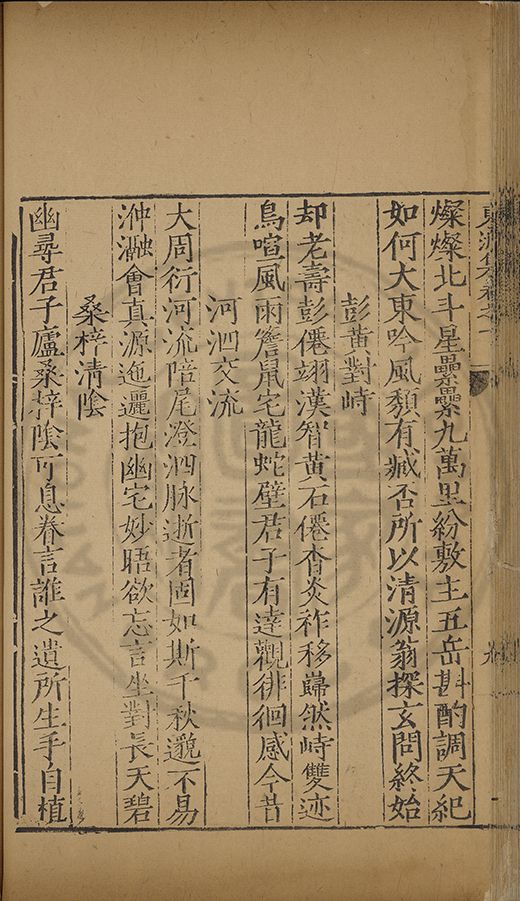 燦燦北斗星纍纍九萬里紛敷主五岳斟酌調天紀
如何大東吟風頽有臧否所以清源翁探玄問終始
彭黃對峙
却老壽彭僊翊漢智黃石僊杳炎祚移巋然峙雙迹
鳥喧風雨簷鼠宅龍蛇壁君子有達觀徘徊感今昔
河泗交流
大周衍河流陪尾澄泗脉逝者固如斯千秋邈不易
沖瀜會真源迤邐抱幽宅妙晤欲忘言坐對長天碧
桑梓清陰
幽尋君子廬桑梓陰可息眷言誰之遺所生手自植